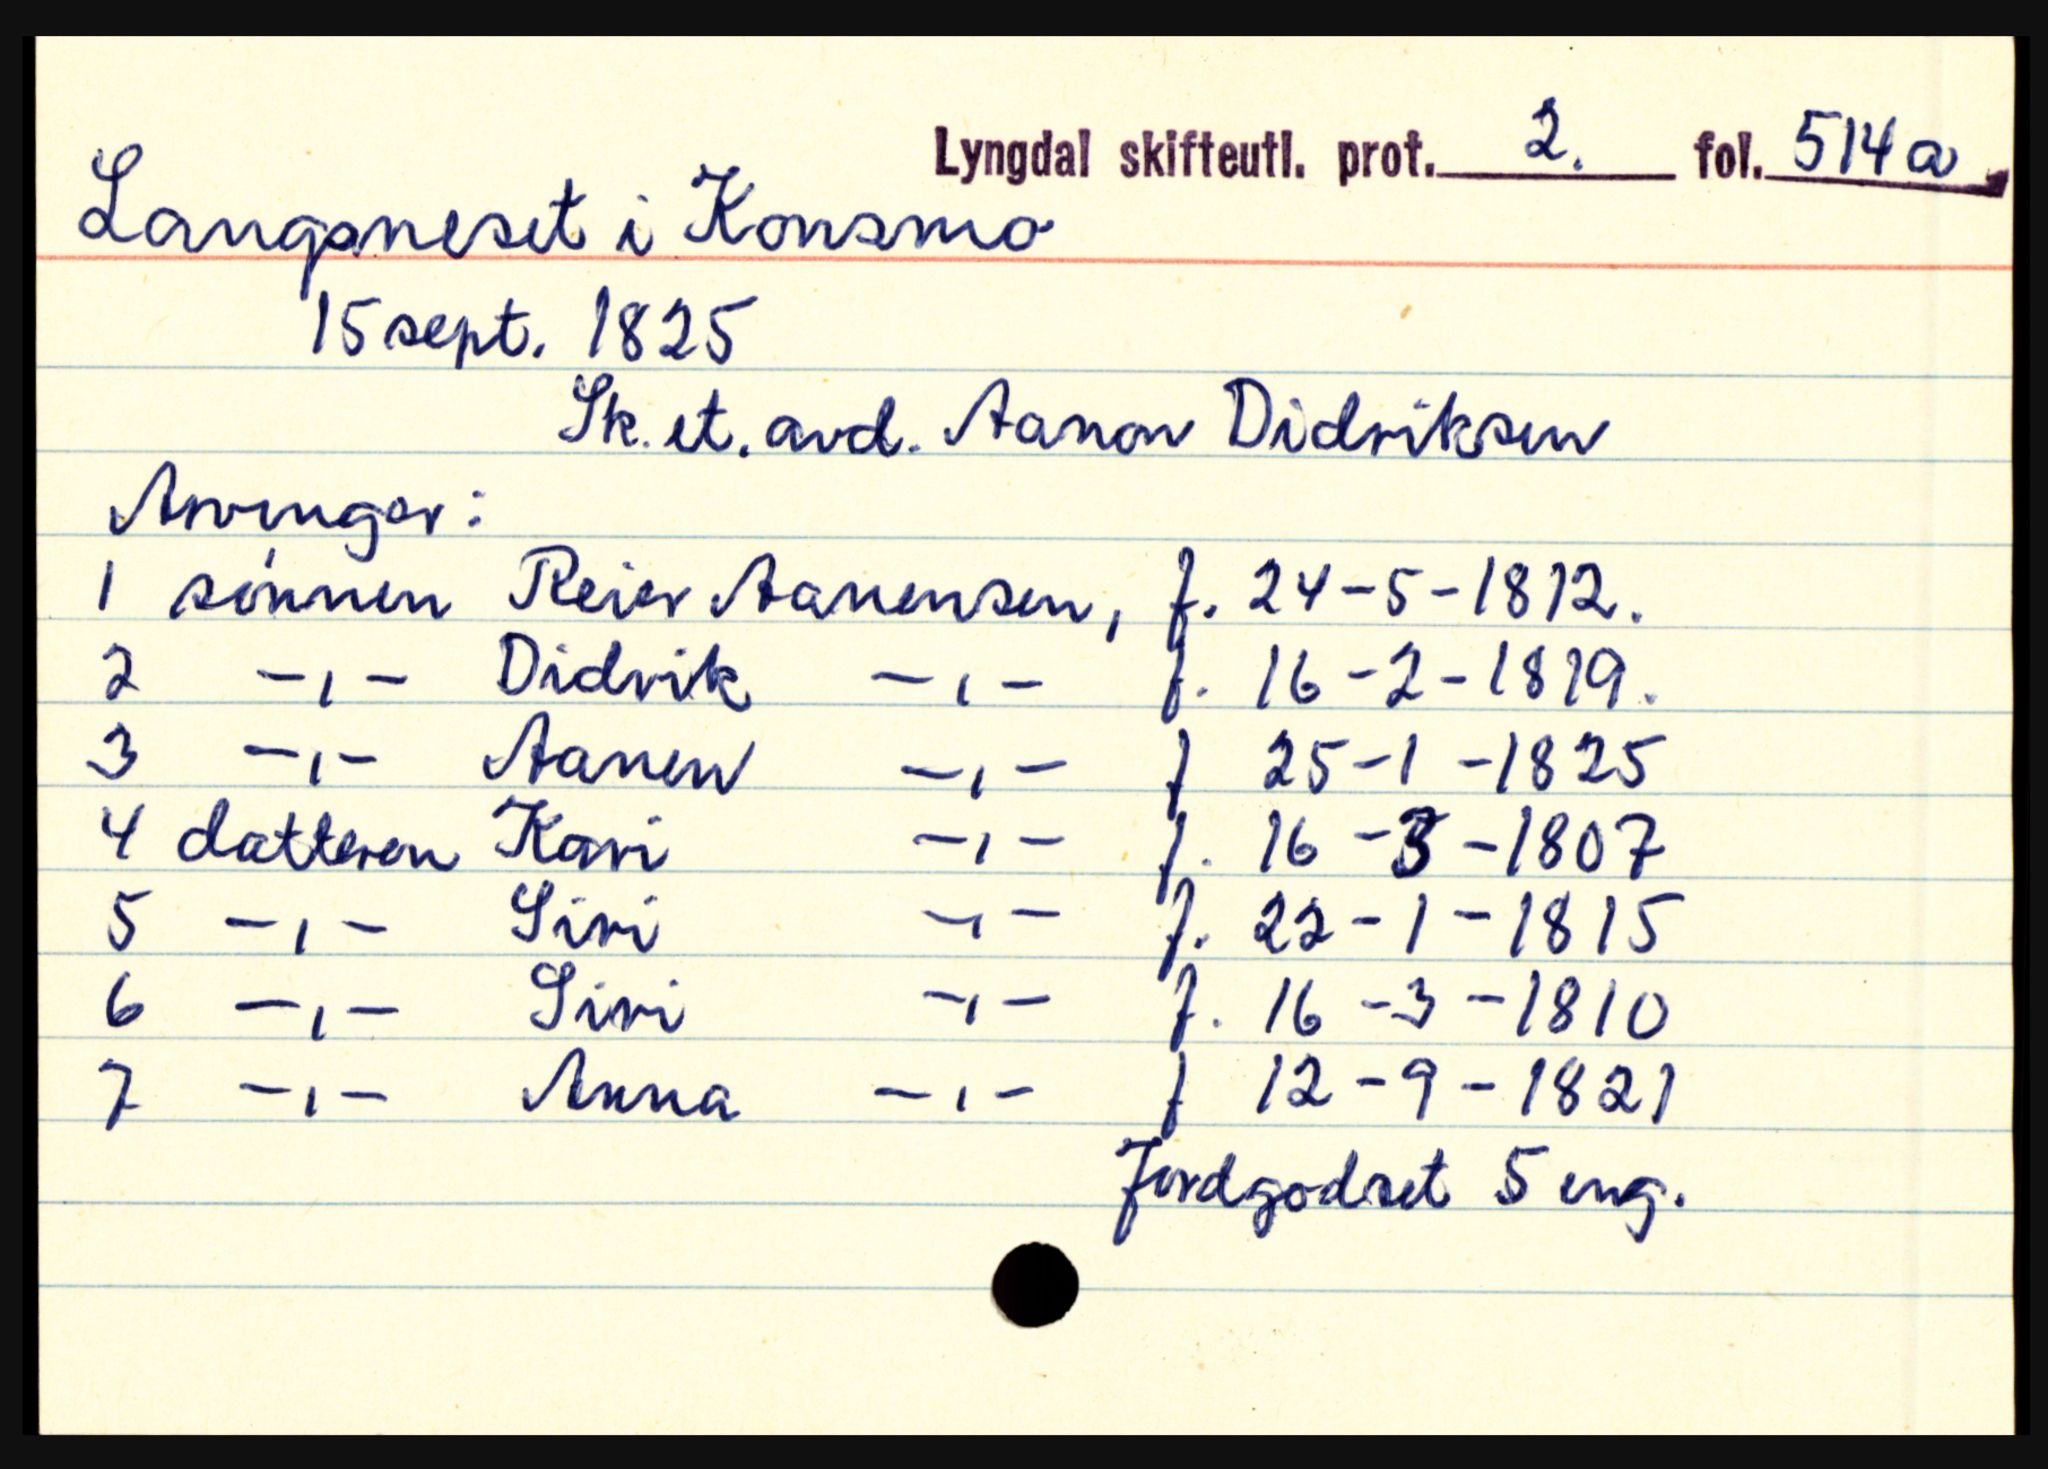 Lyngdal skifteutl. prot. 2. fol. 514a
Langsneset i Konsmo
15 sept. 1825
Sk. et. avd. Aanon Didriksen
Arvinger:
1 sønnen Reier Aanensen, f. 24-5-1812.
2 -,- Didrik -,- f. 16-2-1819.
3 -,- Aanen -,- f 25-1-1825
4 datteren Kari -,- f. 16-3-1807
5 -,- Siri -,- f. 22-1-1815
6 -,- Siri -,- f. 16-3-1810
7 -,- Anna -,- f 12-9-1821
Jordgodset 5 eng.